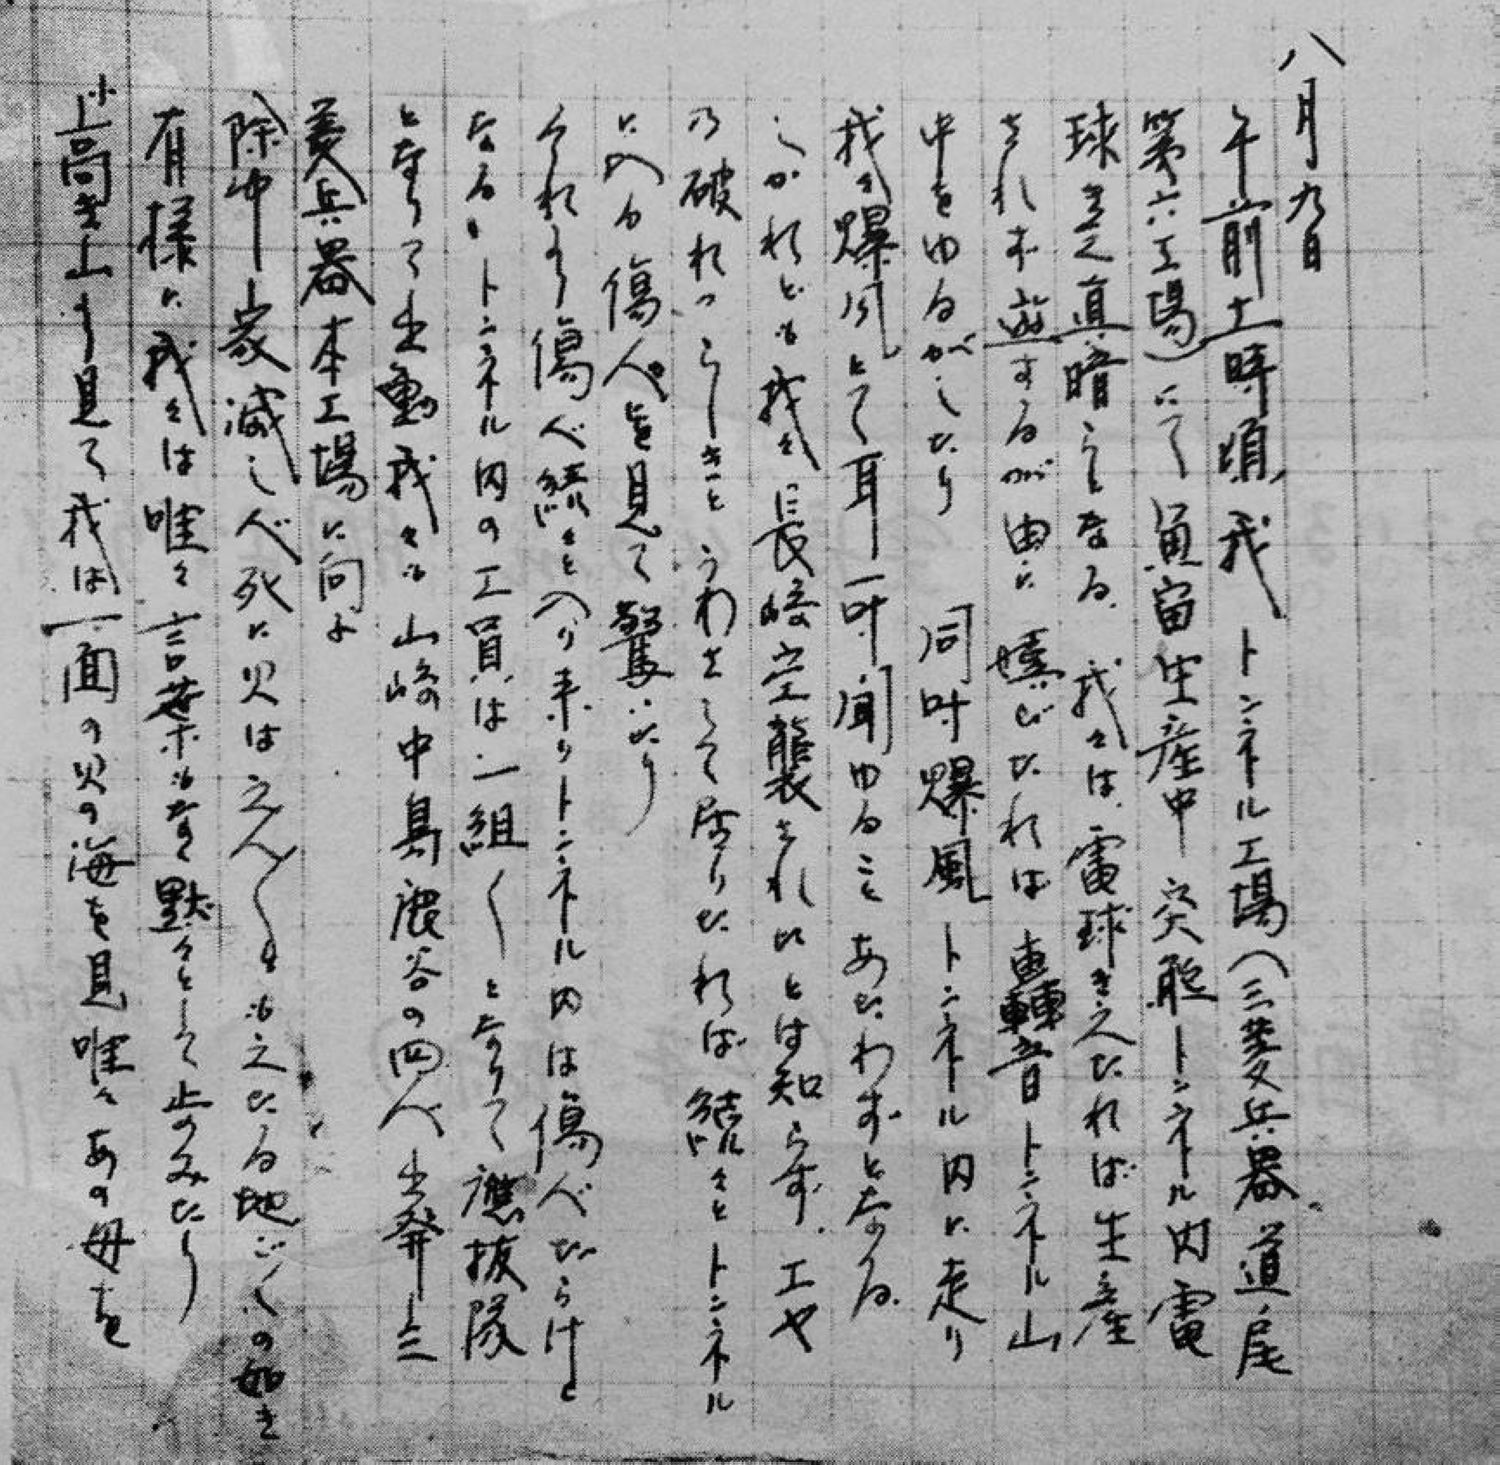 八月九日
午前十一時頃、我 トンネル工場(三菱兵器 道ノ尾
第六工場)にて 魚雷生産中 突然トンネル内電
球きえ真暗らとなる、我々は、電球きえたれば生産
されず遊するが由に 喜びたれば 轟音トンネル山
中をゆるがしたり 同時爆風トンネル内に走り
我々爆風とて耳一時聞ゆることあたわずとなる。
しかれども我々長崎空襲されたとは知らず、エヤ
の破れつらしきとうわさして居りたれば続々とトンネル
に入る傷人を見て驚いたり
それより傷人続々と入り来りトンネル内は傷人だらけと
なる、トンネル内の工員は一組〱となりて応援隊
となりて出動我々も山崎中島鹿谷の四人出発三
菱兵器本工場に向よ
除中家滅し人死に火はえん〱ともえたる地ごくの如き
有様に我々は唯々言葉もなく黙々として止のみたり
小高き上より見て我は一面の火の海を見唯々あの母を